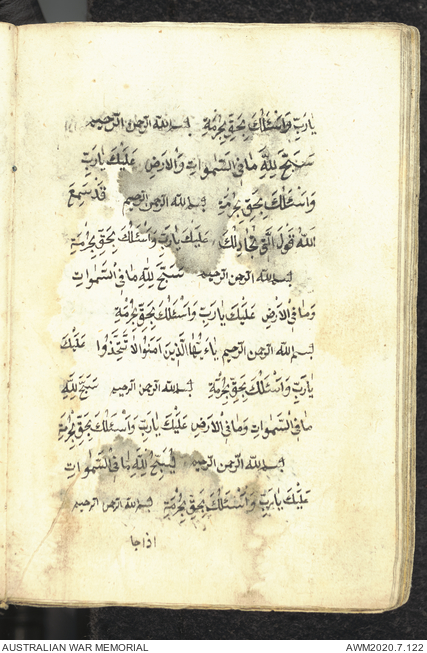 يَارَبِّ وَاَسْئَلُكَ بِحَقِّ بِحُرْمَةِ بسم الله الرحمن الرحيم
سَبَّحَ لِلّٰهِ مَا فِى السَّمٰوَاتِ وَالْاَرْضِ عَلَيْكَ يَارَبِّ
وَاَسْئَلُكَ بِحَقِّ بِحُرْمَةِ بسم الله الرحمن الرحيم قَدْ سَمِعَ
اللّٰهُ قَوْلَ الَّتِى تُجَادِلُكَ عَلَيْكَ يَارَبِّ وَاَسْئَلُكَ بِحَقِّ بِحُرْمَةِ
بسم الله الرحمن الرحيم سَبَّحَ لِلّٰهِ مَا فِى السَّمٰوَاتِ
وَمَا فِى الْاَرْضِ عَلَيْكَ يَارَبِّ وَاَسْئَلُكَ بِحَقِّ بِحُرْمَةِ
بسم الله الرحمن الرحيم يَاءَيُّهَا الَّذِينَ اٰمَنُوا لَا تَتَّخِذُوا عَلَيْكَ
يَارَبِّ وَاَسْئَلُكَ بِحَقِّ بِحُرْمَةِ بسم الله الرحمن الرحيم سَبَّحَ لِلّٰهِ
مَا فِى السَّمٰوَاتِ وَمَا فِى الْاَرْضِ عَلَيْكَ يَارَبِّ وَاَسْئَلُكَ بِحَقِّ بِحُرْمَةِ
بسم الله الرحمن الرحيم يُسَبِّحُ لِلّٰهِ مَا فِى السَّمٰوَاتِ
عَلَيْكَ يَارَبِّ وَاَسْئَلُكَ بِحَقِّ بِحُرْمَةِ بسم الله الرحمن الرحيم
اذا جا
AUSTRALIAN WAR MEMORIAL AWM2020.7.122